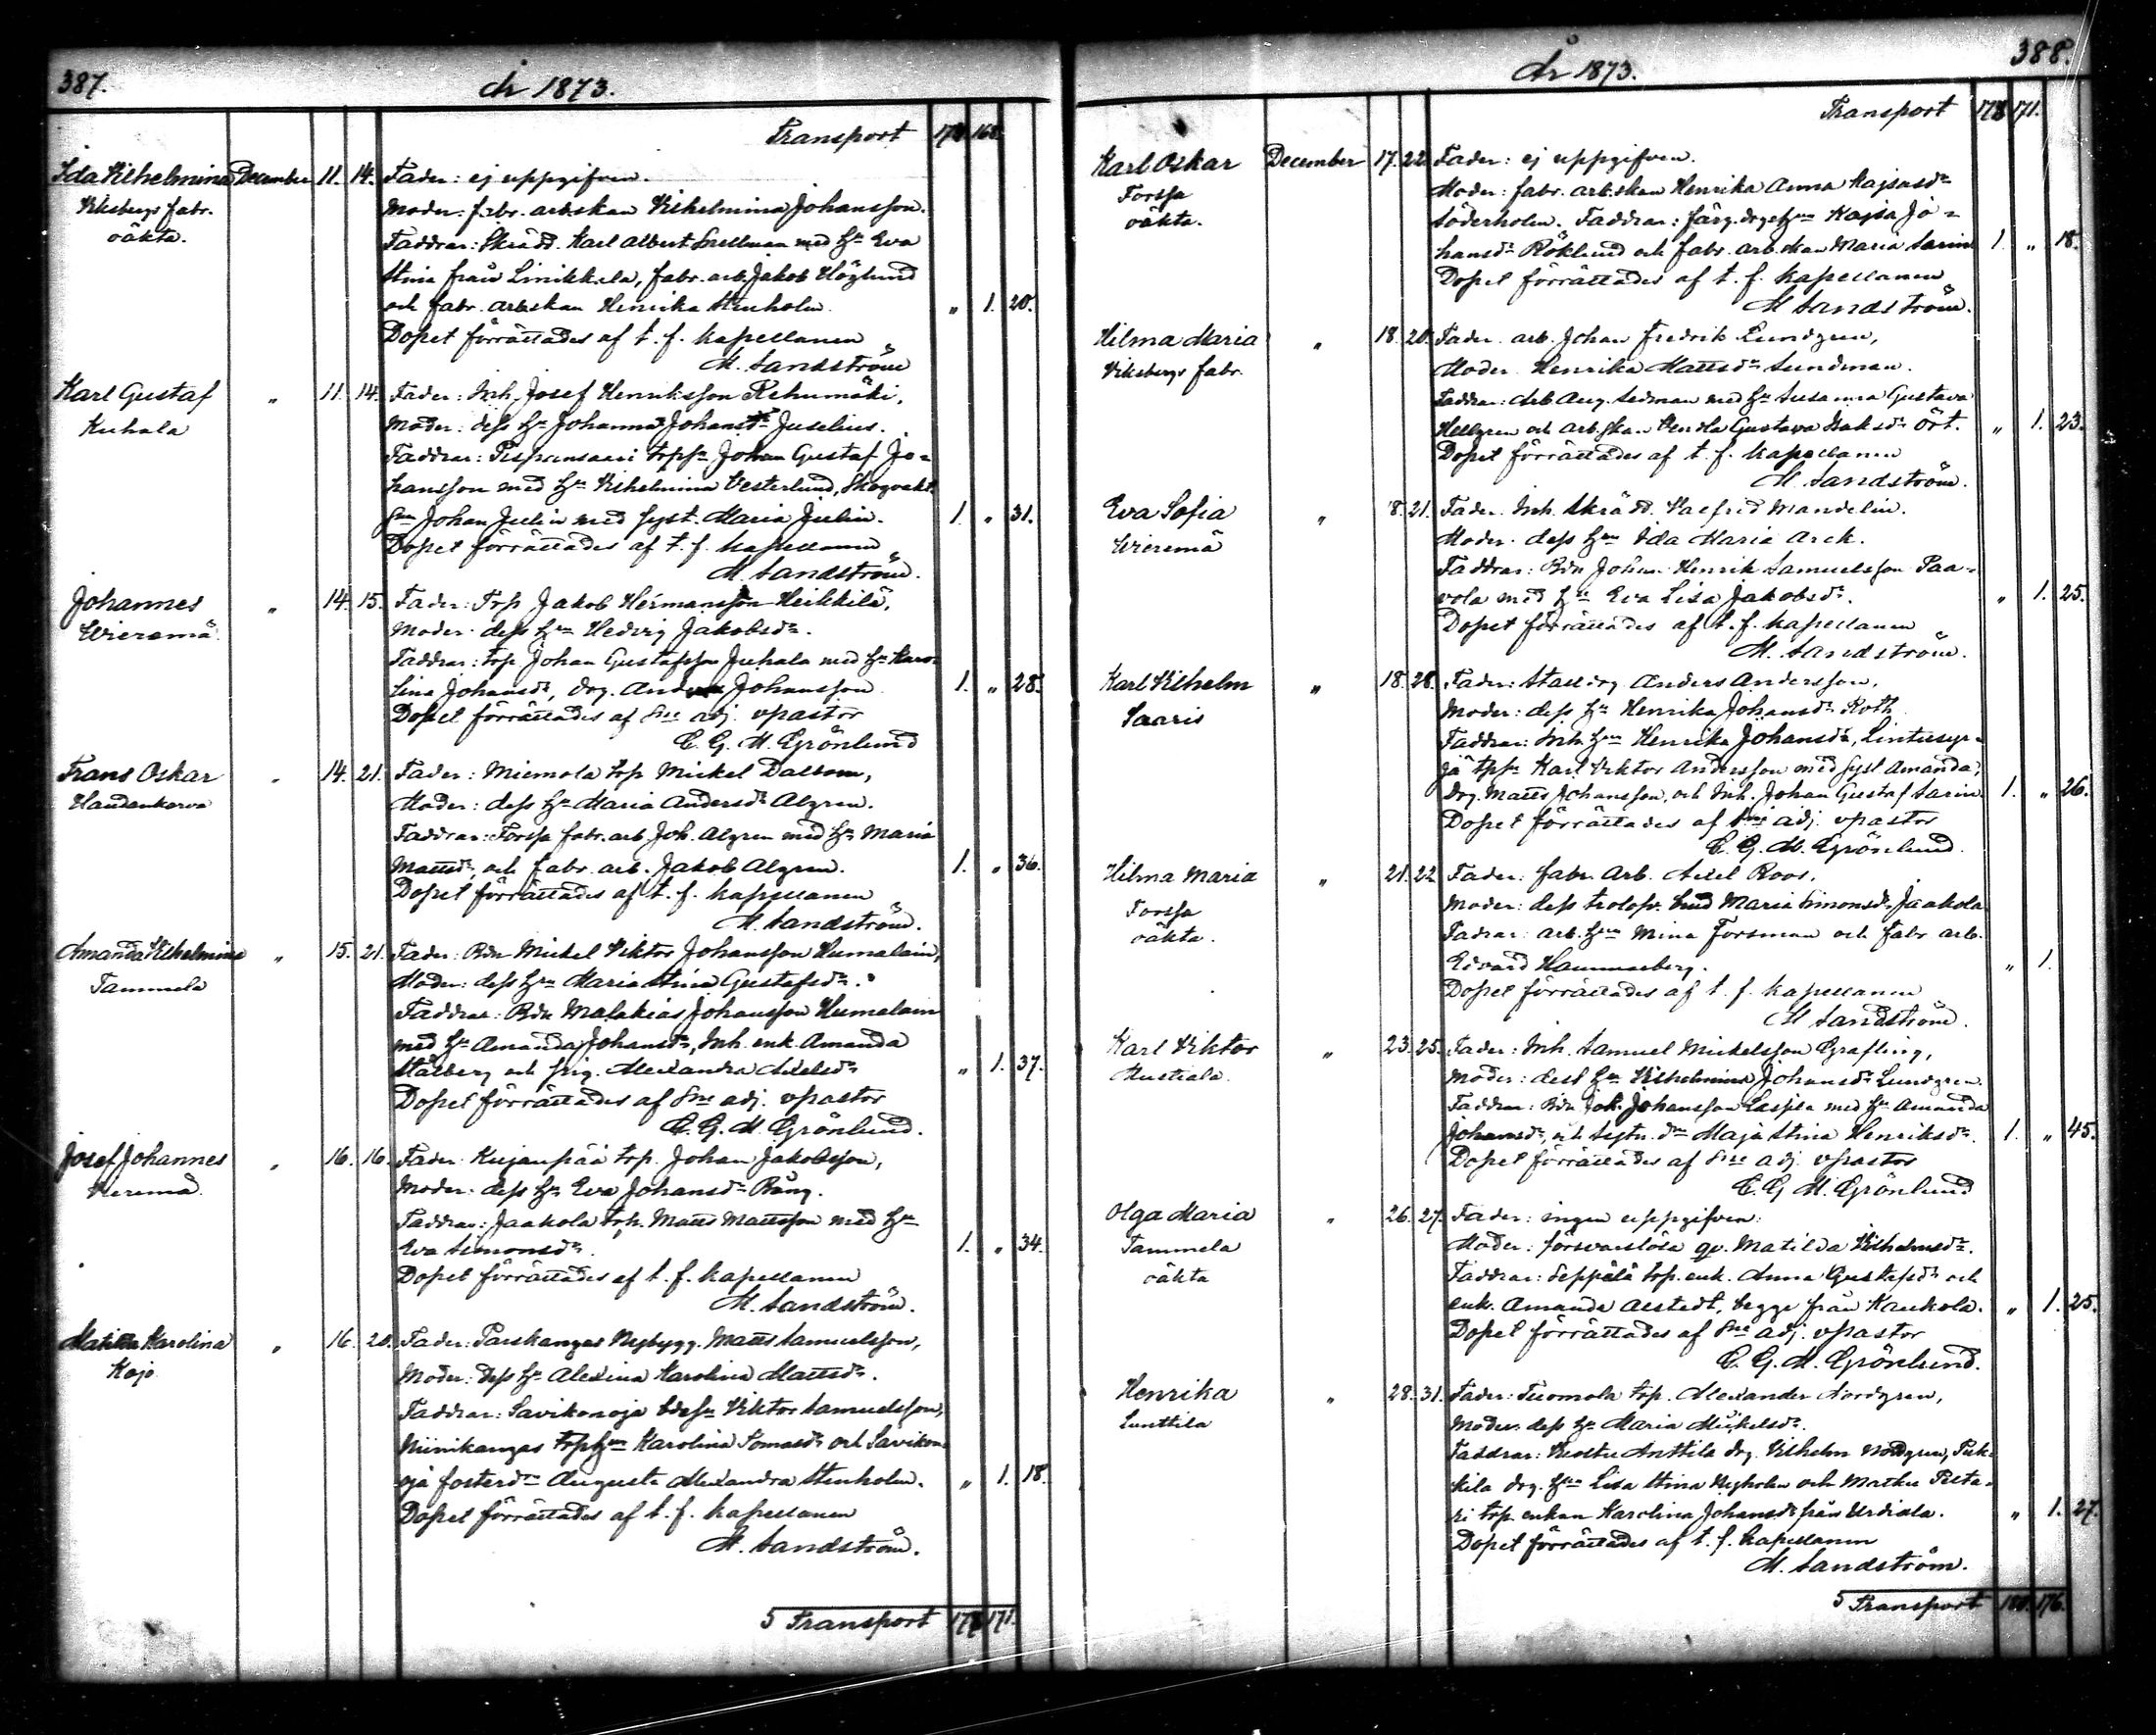 387.
År 1873.
Transport 168.
Ida Vilhelmina December 11. 14. Fader: ej uppgifven.
Viksbergs fabr. Moder: fabr. arb.skan Vilhelmina Johansson.
oäkta. Faddrar: Skrädd. Karl Albert Snellman med Hu Eva
Stina från Linikkala, fabr. arb. Jakob Höglund
och fabr. arb.skan Henrika Stenholm. „ 1. 20.
Dopet förrättades af t. f. kapellanen
M. Sandström
Karl Gustaf „ 11. 14. Fader: Inh. Josef Henriksson Rehumäki,
Kuhala Moder: dess Hu Johanna Johansdr Juselius.
Faddrar: Pispansaari torpn Johan Gustaf Jo-
hansson med Hu Vilhelmina Vesterlund, Skogvakt.
Johan Julin med syst. Maria Julin. 1. „ 31.
Dopet förrättades af t. f. kapellanen
M. Sandström.
Johannes „ 14. 15. Fader: Trp Jakob Hermansson Heikkilä,
Wieremä Moder: dess Hu Hedvig Jakobsdr.
Faddrar: trp. Johan Gustafsson Juhala med Hu Karo-
lina Johansdr, drg. Johansson 1. „ 28.
Dopet förrättades af adj. vpastor
C. G. M. Grönlund
Frans Oskar „ 14. 21. Fader: Miemola trp Mickel Dalbom,
Haudankorva Moder: dess Hu Maria Andersdr Algren.
Faddrar: Forssa fabr. arb. Joh. Algren med Hu Maria
Mattsdr, och fabr. arb. Jakob Algren. 1. „ 36.
Dopet förrättades af t. f. kapellanen
M. Sandström.
Amanda Vilhelmina „ 15. 21. Fader: Bdn Mickel Viktor Johansson Humalain,
Tammela Moder: dess Hu Maria Stina Gustafsdr.
Faddrar: Bdn Malakias Johansson Humalain
med Hu Amanda Johansdr, Inh. enk. Amanda
Stålberg och pig. Alexandra Axelsdr „ 1. 37.
Dopet förrättades af adj. vpastor
C. G. M. Grönlund.
Josef Johannes „ 16. 16. Fader: Kujanpää trp. Johan Jakobsson,
Vieremä Moder: dess Hu Eva Johansdr Bång.
Faddrar: Jaakola trp. Matts Mattsson med Hu
Eva Simonsdr. 1. „ 34.
Dopet förrättades af t. f. kapellanen
M. Sandström.
Matilda Karolina „ 16. 20. Fader: Paiskangas Nybygg. Matts Samuelsson,
Kojo Moder: dess Hu Alexina Karolina Mattsdr.
Faddrar: Savikonoja Viktor Samuelsson,
Niinikangas Karolina Tomasdr och Savikon-
oja fosterdr Augusta Alexandra Stenholm. „ 1. 18.
Dopet förrättades af t. f. kapellanen
M. Sandström.
5 Transport 171.
388.
År 1873.
Transport 178 171.
Karl Oskar December 17. 22. Fader: ej uppgifven.
Forssa Moder: fabr. arb.skan Henrika Anna Kajsasdr
oäkta. Söderholm. Faddrar: färg. drgs Hun Kajsa Jo-
hansdr Röklund och fabr. arb.skan Maria Sarin 1. „ 18.
Dopet förrättades af t. f. kapellanen
M. Sandström.
Hilma Maria „ 18. 20. Fader: arb. Johan Fredrik Lundgren,
Viksbergs fabr. Moder: Henrika Mattsdr Sundman.
Faddrar: Arb. Aug. Sedman med Hu Susanna Gustava
Hellgren och arb.skan Vendla Gustava Isaksdr Ört. „ 1. 23.
Dopet förrättades af t. f. kapellanen
M. Sandström.
Eva Sofia „ 18. 21. Fader: Inh. Skrädd. Valfrid Mandelin.
Wieremä Moder: dess Hun Ida Maria Arck.
Faddrar: Bdn Johan Henrik Samuelsson Paa-
vola med Hu Eva Lisa Jakobsdr. „ 1. 25.
Dopet förrättades af t. f. kapellanen
M. Sandström.
Karl Vilhelm „ 18. 28. Fader: Stalldrg Anders Andersson,
Saaris Moder: dess Hu Henrika Johansdr Roth
Faddrar: Inh. Hun Henrika Johansdr, Lintusyr-
jä Karl Viktor Andersson med syst Amanda,
drg. Matts Johansson, och Inh. Johan Gustaf Sarin. 1. „ 26.
Dopet förrättades af adj. vpastor
C. G. M. Grönlund.
Hilma Maria „ 21. 22 Fader: fabr. arb. Axel Roos.
Forssa Moder: dess trolofv. brud Maria Simonsdr Jaakola
oäkta. Fadrar: arb. Hun Mina Forsman och fabr. arb.
Edvard Hammarberg. „ 1.
Dopet förrättades af t. f. kapellanen
M. Sandström.
Karl Viktor „ 23. 25. Fader: Inh. Samuel Mickelsson Grafling,
Mustiala. Moder: dess Hu Vilhelmina Johansdr Lundgren.
Faddrar: Bdn Joh. Johansson med Hu Amanda
Johansdr, och Maja Stina Henriksdr. 1. „ 45.
Dopet förrättades af adj. vpastor
C. G. M. Grönlund
Olga Maria „ 26. 27. Fader: ingen uppgifven.
Tammela Moder: försvarslösa qv. Matilda Vilhelmsdr.
oäkta Faddrar: Seppälä trp. enk. Anna Gustafsdr och
enk. Amanda Alstedt, begge från Kaukola. „ 1. 25.
Dopet förrättades af adj. vpastor
C. G. M. Grönlund.
Henrika „ 28. 31. Fader: Tuomola trp. Alexander Nordgren,
Sunttila Moder: dess Hu Maria Mickelsdr.
Faddrar: Anttila drg. Vilhelm Nordgren,
kila drg. Hun Lisa Stina Nyholm och
trp. enkan Karolina Johansdr från Urdiala. „ 1. 27.
Dopet förrättades af t. f. kapellanen
M. Sandström.
5 Transport 176.